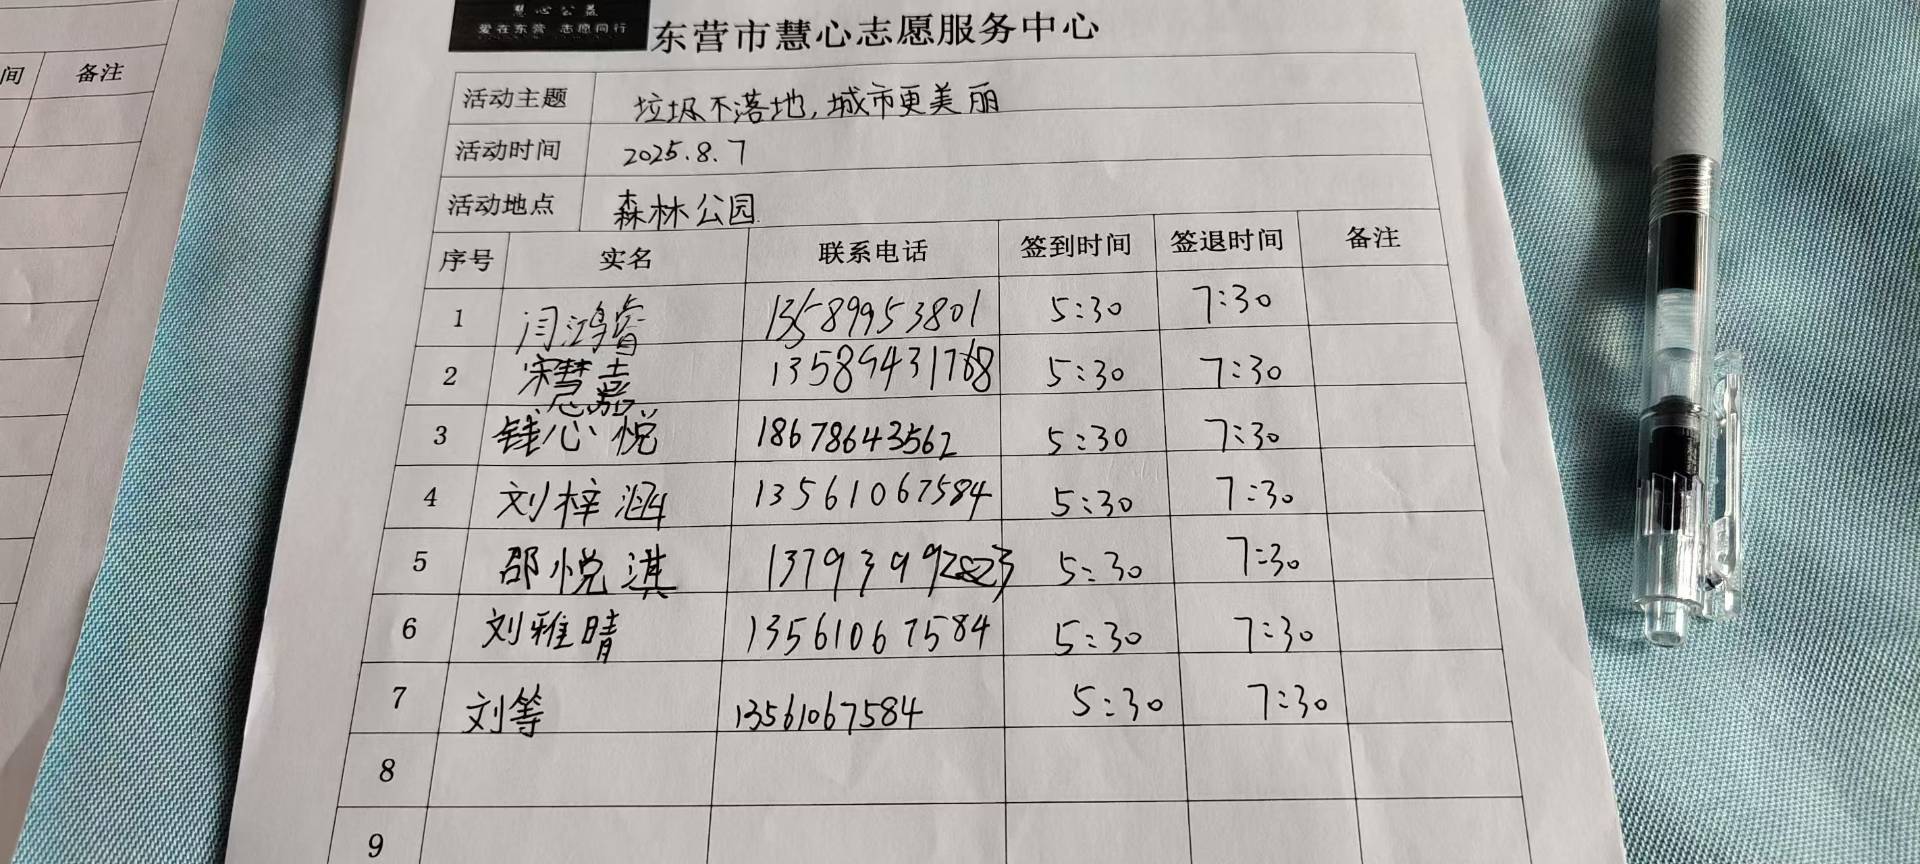 慧心公益
爱在东营 志愿同行
东营市慧心志愿服务中心
间 备注
活动主题 垃圾不落地,城市更美丽
活动时间 2025.8.7
活动地点 森林公园.
序号 实名 联系电话 签到时间 签退时间 备注
1 闫鸿睿 13589953801 5:30 7:30
2 宋慧嘉 5:30 7:30
3 钱心悦 18678643562 5:30 7:30
4 刘梓涵 13561067584 5:30 7:30
5 邵悦淇 5:30 7:30
6 刘雅晴 13561067584 5:30 7:30
7 刘等 13561067584 5:30 7:30
8
9